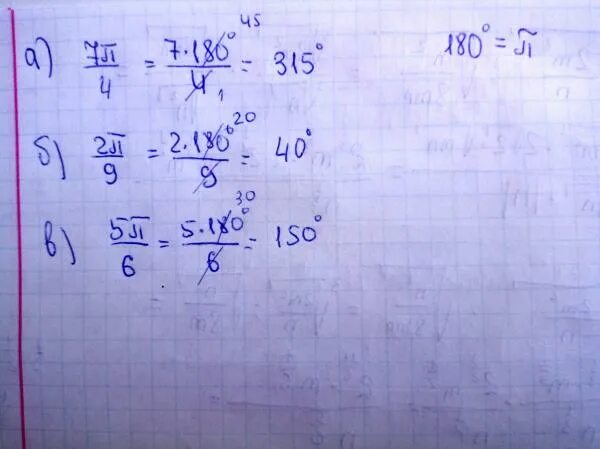 а) 7π/4 = 7·180°/4 = 315° 180° = π
45
1
б) 2π/9 = 2·180°/9 = 40°
20
в) 5π/6 = 5·180°/6 = 150°
30